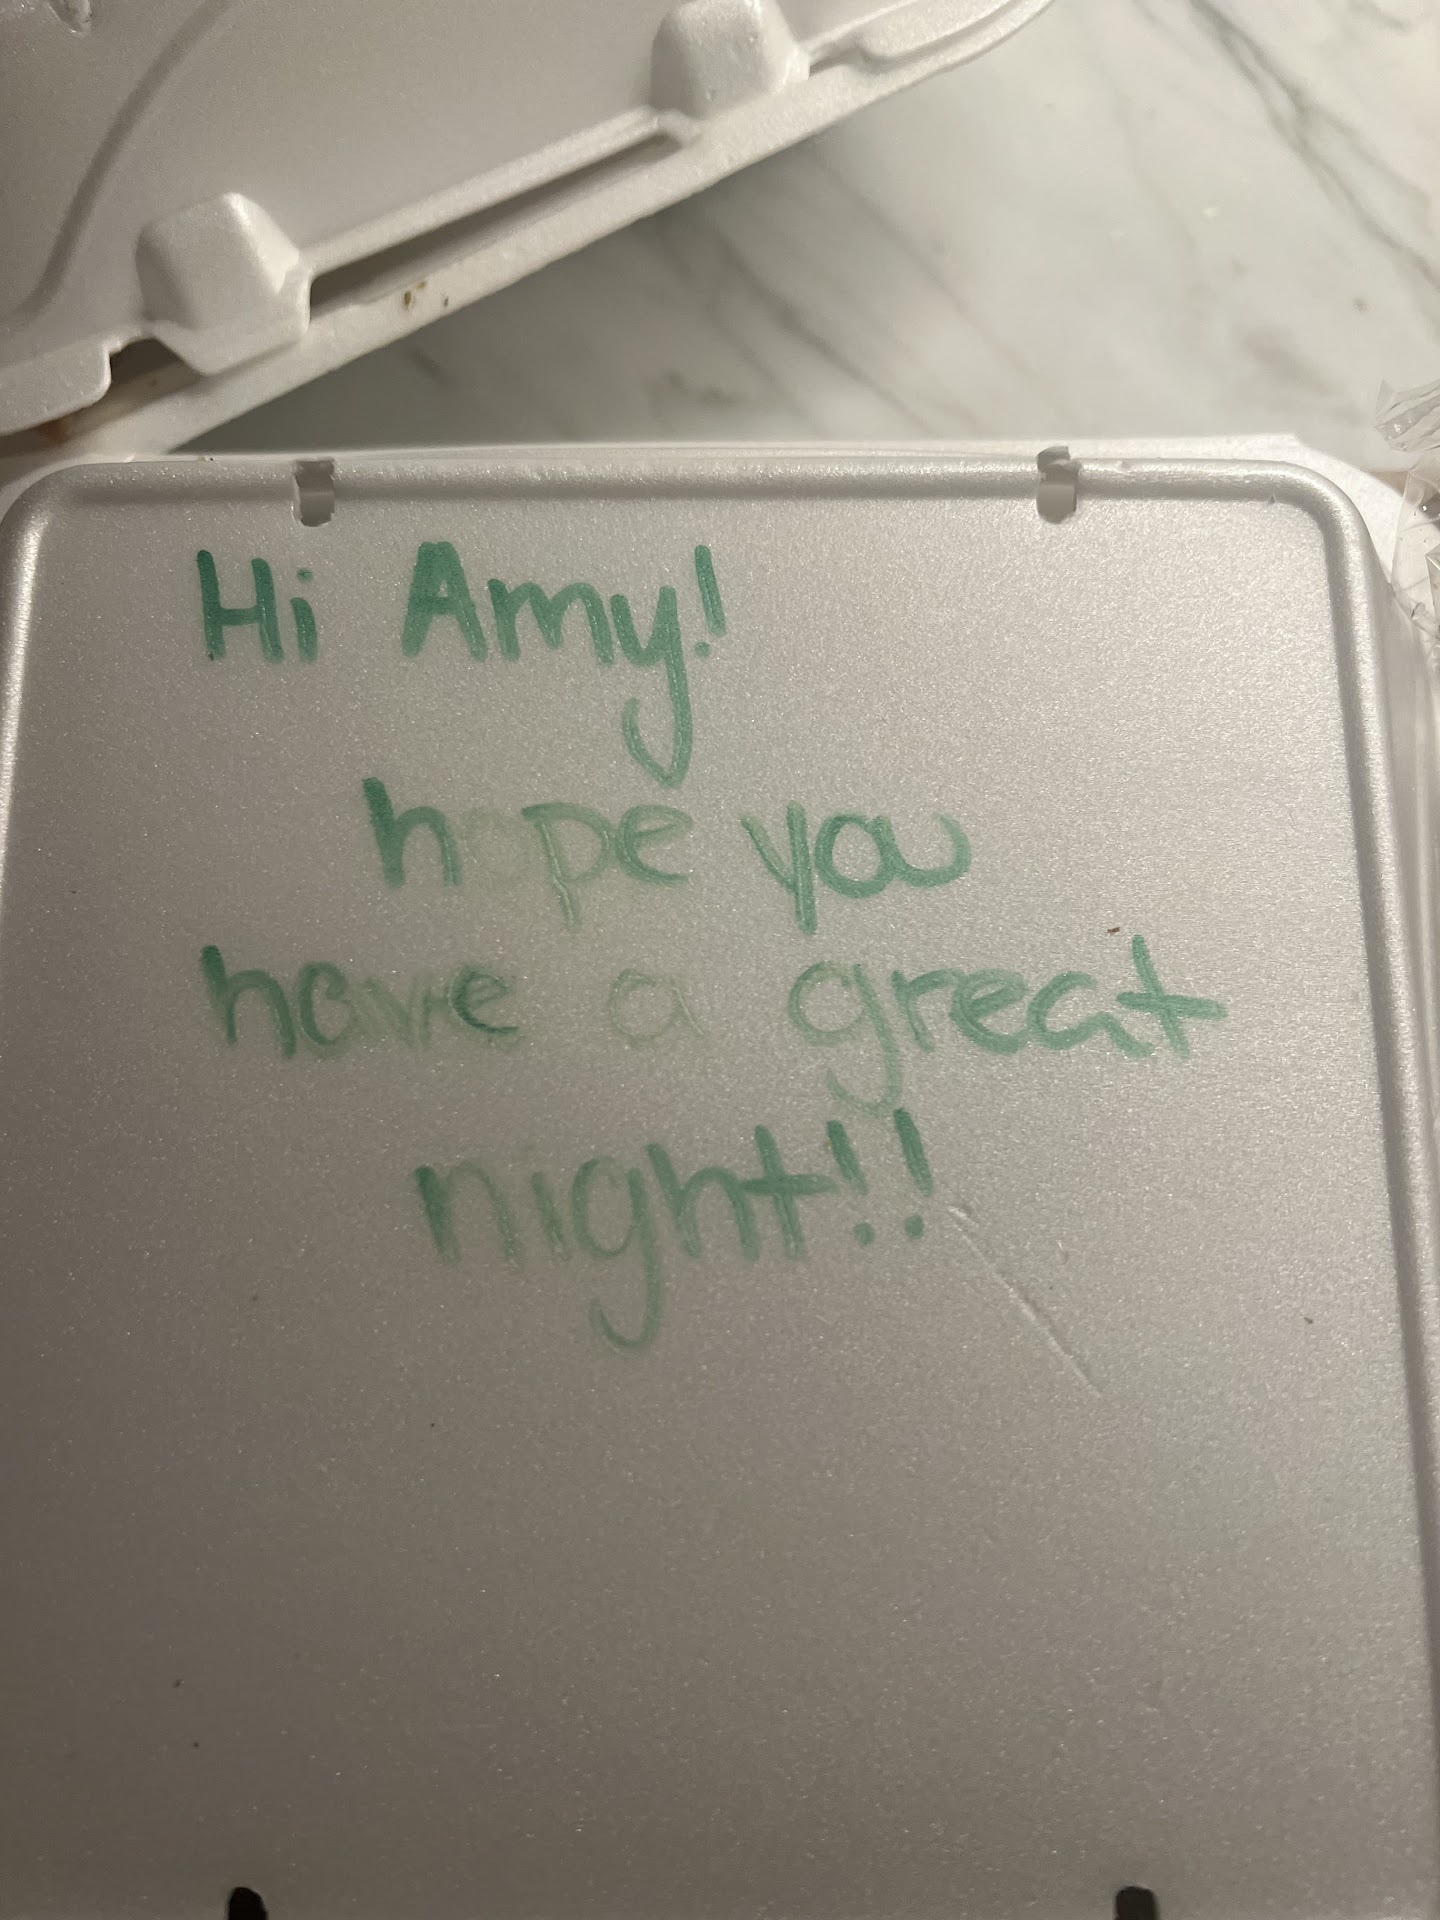 Hi Amy!
hope you
have a great
night!!